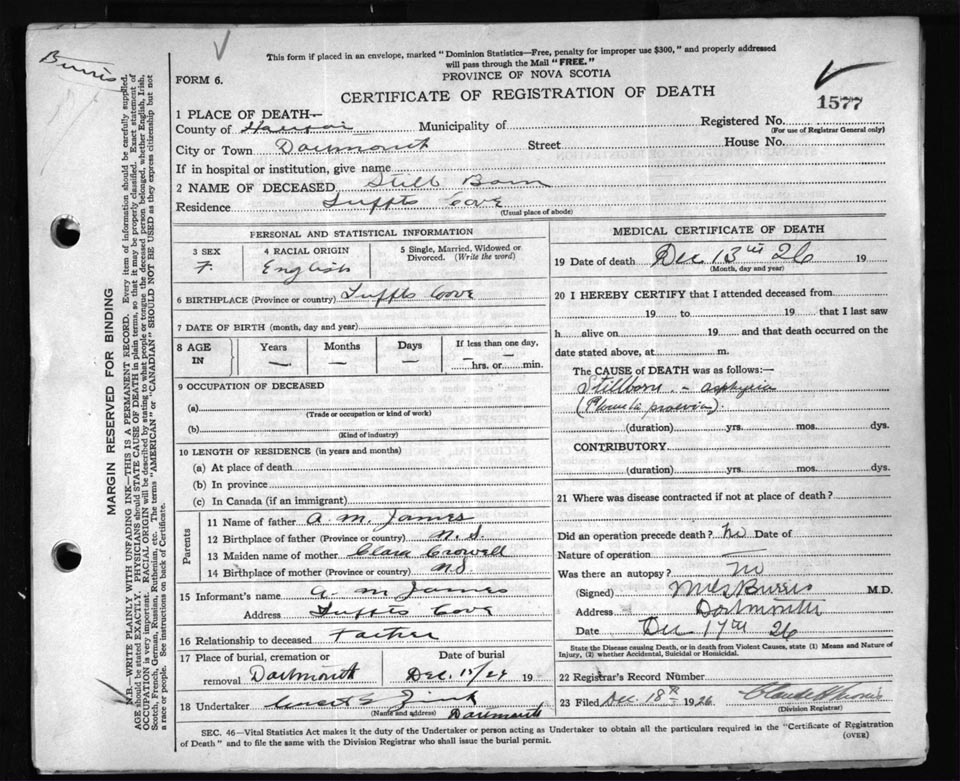 Burris
This form if placed in an envelope, marked "Dominion Statistics—Free, penalty for improper use $300," and properly addressed
will pass through the Mail "FREE."
FORM 6.
PROVINCE OF NOVA SCOTIA
CERTIFICATE OF REGISTRATION OF DEATH
1577
1 PLACE OF DEATH—
County of Municipality of Registered No.
(For use of Registrar General only)
City or Town Dartmouth Street House No.
If in hospital or institution, give name
2 NAME OF DECEASED Still Born
Residence Tuffts Cove
(Usual place of abode)
MARGIN RESERVED FOR BINDING
N.B.—WRITE PLAINLY WITH UNFADING INK—THIS IS A PERMANENT RECORD. Every item of information should be carefully supplied.
AGE should be stated EXACTLY. PHYSICIANS should STATE CAUSE OF DEATH in plain terms, so that it may be properly classified. Exact statement of
OCCUPATION is very important. RACIAL ORIGIN will be described by stating to what people or tongue the deceased person belonged, whether English, Irish,
Scotch, French, German, Russian, Ruthenian, etc. The terms "AMERICAN" or "CANADIAN" SHOULD NOT BE USED as they express citizenship but not
a race or people. See instructions on back of Certificate.
PERSONAL AND STATISTICAL INFORMATION
3 SEX 4 RACIAL ORIGIN 5 Single, Married, Widowed or
Divorced. (Write the word)
F. English
6 BIRTHPLACE (Province or country) Tuffts Cove
7 DATE OF BIRTH (month, day and year)
8 AGE IN Years Months Days If less than one day,
— — — hrs. or min.
9 OCCUPATION OF DECEASED
(a)
(Trade or occupation or kind of work)
(b)
(Kind of industry)
10 LENGTH OF RESIDENCE (in years and months)
(a) At place of death
(b) In province
(c) In Canada (if an immigrant)
Parents
11 Name of father A. M. James
12 Birthplace of father (Province or country) N.S.
13 Maiden name of mother Clara Crowell
14 Birthplace of mother (Province or country) N.S
15 Informant's name A. M. James
Address Tuffts Cove
16 Relationship to deceased Father
17 Place of burial, cremation or Date of burial
removal Dartmouth Dec. 19
18 Undertaker
(Name and address) Dartmouth
MEDICAL CERTIFICATE OF DEATH
19 Date of death Dec 13th 26 19
(Month, day and year)
20 I HEREBY CERTIFY that I attended deceased from
19 to 19 that I last saw
h alive on 19 and that death occurred on the
date stated above, at m.
The CAUSE of DEATH was as follows:—
Stillborn - asphyxia
(Placenta praevia)
(duration) yrs. mos. dys.
CONTRIBUTORY
(duration) yrs. mos. dys.
21 Where was disease contracted if not at place of death?
Did an operation precede death? No Date of
Nature of operation —
Was there an autopsy? No
(Signed) Burris M.D.
Address Dartmouth
Date Dec 17th 26
State the Disease causing Death, or in death from Violent Causes, state (1) Means and Nature of
Injury, (2) whether Accidental, Suicidal or Homicidal.
22 Registrar's Record Number
23 Filed Dec. 18th 1926
(Division Registrar)
SEC. 46—Vital Statistics Act makes it the duty of the Undertaker or person acting as Undertaker to obtain all the particulars required in the "Certificate of Registration
of Death" and to file the same with the Division Registrar who shall issue the burial permit.
(OVER)